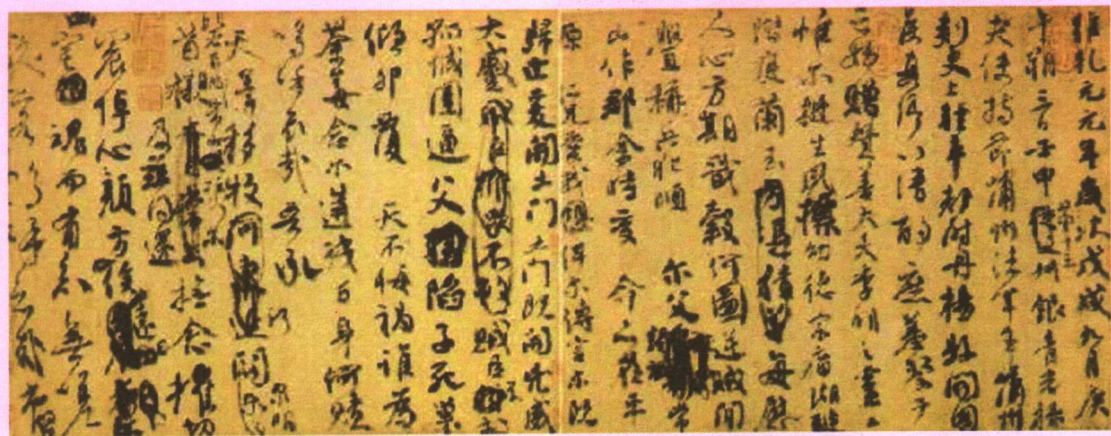 維乾元元年歲次戊戌九月庚
午朔三日壬申第十三叔銀青光祿
夫使持節蒲州諸軍事蒲州
刺史上輕車都尉丹楊縣開國
侯真卿以清酌庶羞祭于
亡姪贈贊善大夫季明之靈曰
惟爾挺生夙標幼德宗廟瑚璉
階庭蘭玉每慰
人心方期戩穀何圖逆賊閒
釁稱兵犯順 爾父竭誠常
山作郡余時受命亦在平
原仁兄愛我俾爾傳言爾既
歸止爰開土門土門既開凶威
大蹙賊臣不救
孤城圍逼父陷子死巢
傾卵覆 天不悔禍誰為
荼毒念爾遘殘百身何贖
嗚呼哀哉吾承
天澤移牧河關泉明
比者再陷常山攜爾
首櫬及茲同還撫念摧切
震悼心顏方俟遠日
爾幽宅魂而有知無嗟
久客嗚呼哀哉尚饗